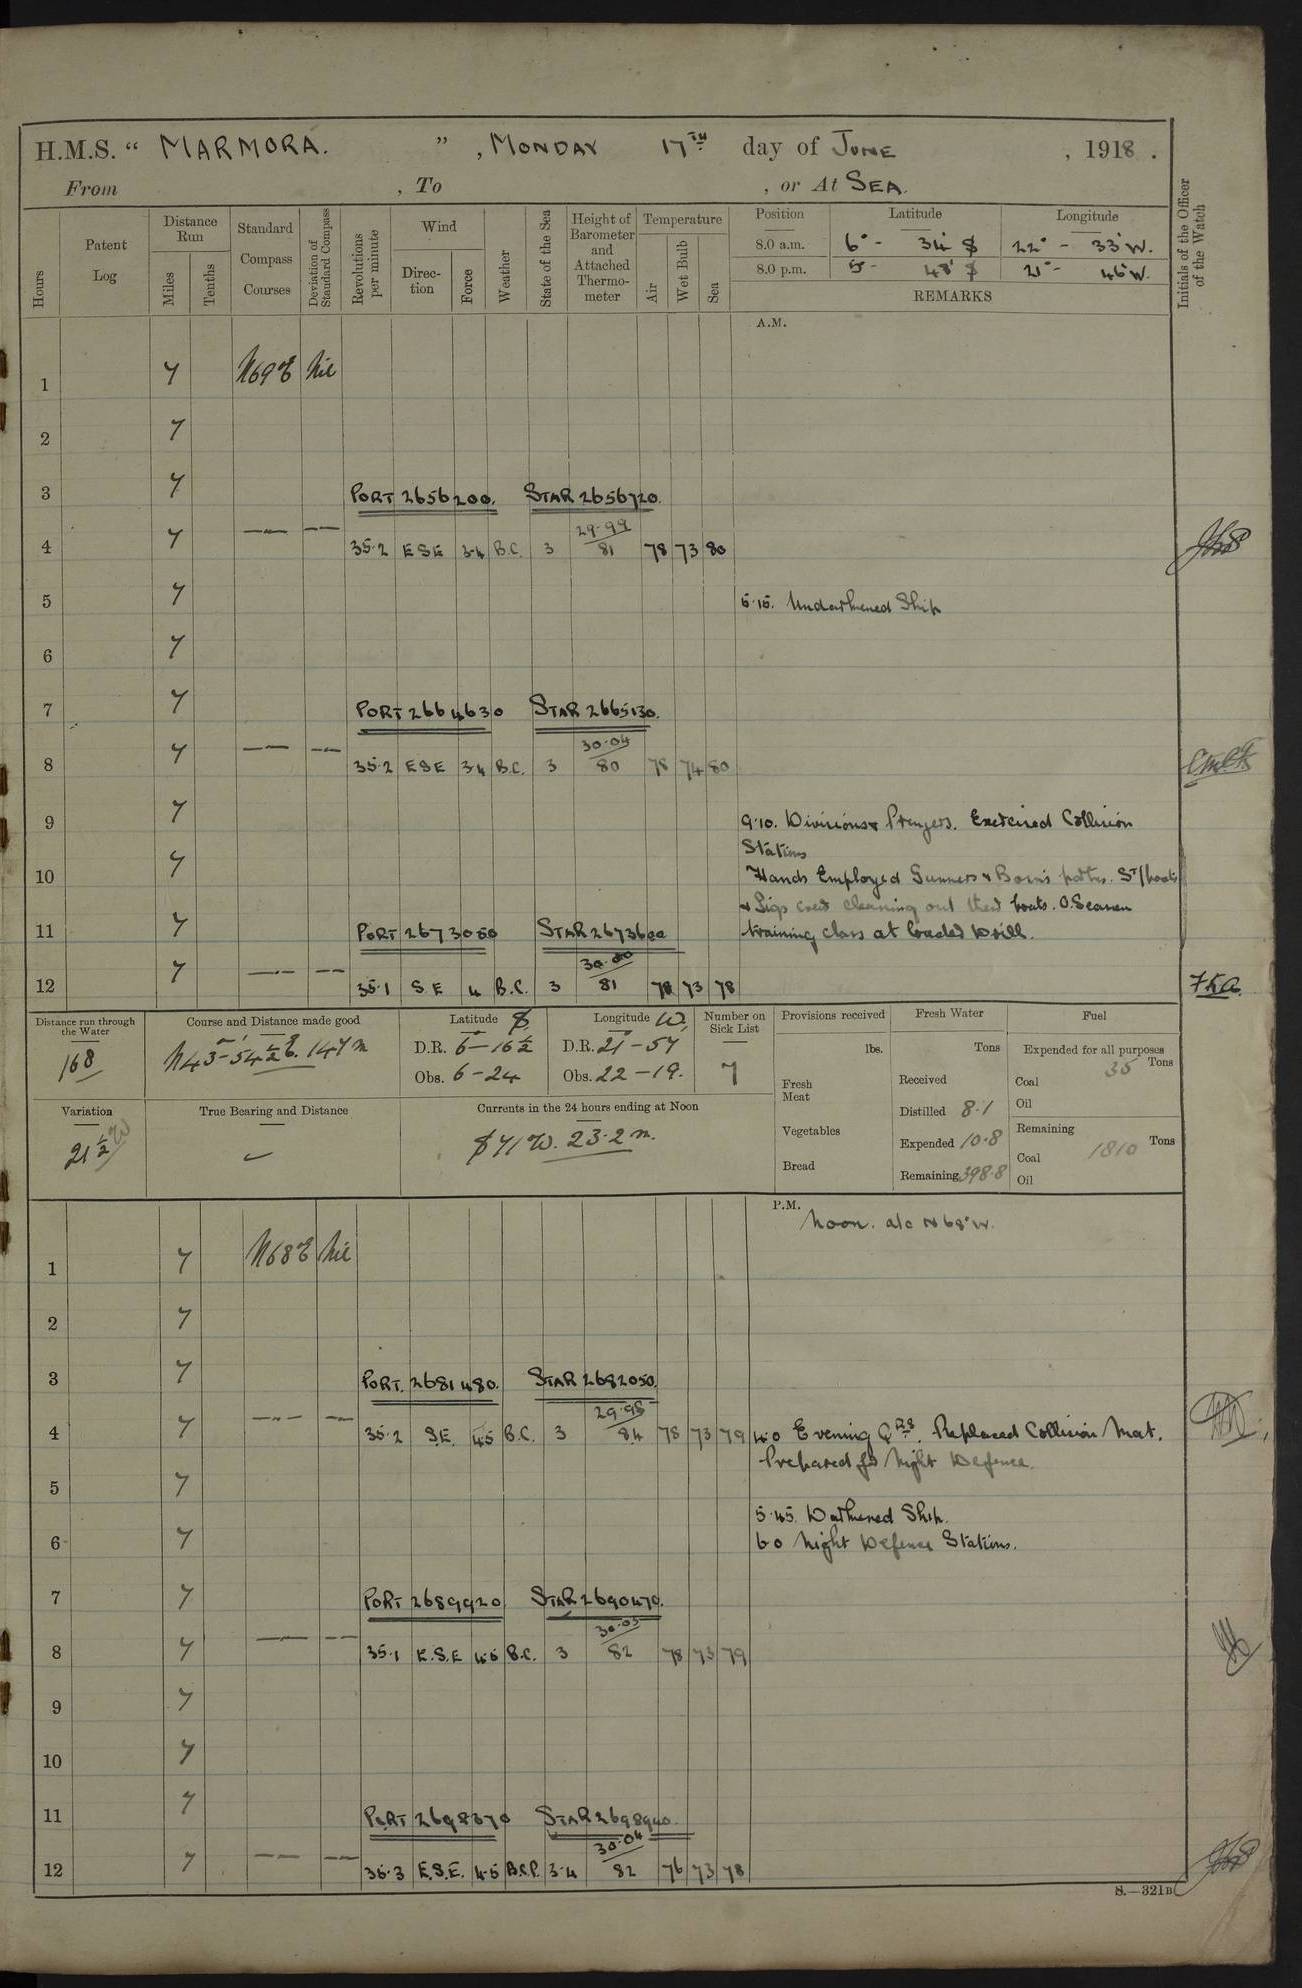 H.M.S. “ MARMORA. ” , MONDAY 17TH day of JUNE , 1918 .
From , To , or At SEA.
Hours
Patent Log
Distance Run
Miles
Tenths
Standard Compass Courses
Deviation of Standard Compass
Revolutions per minute
Wind
Direction
Force
Weather
State of the Sea
Height of Barometer and Attached Thermometer
Temperature
Air
Wet Bulb
Sea
Position Latitude Longitude
8.0 a.m. 6° - 34' S 22° - 33' W.
8.0 p.m. 5° - 48' S 21° - 46' W.
REMARKS
Initials of the Officer of the Watch
A.M.
1 7 N69°E Nil
2 7
3 7 PORT 2656200. STAR 2656720.
4 7 — — 35.2 ESE 3.4 B.C. 3 29.99 81 78 73 80
5 7 5.15. Undarkened Ship
6 7
7 7 PORT 2664630 STAR 2665130.
8 7 — — 35.2 ESE 3.4 B.C. 3 30.04 80 78 74 80
9 7 9.10. Divisions & Prayers. Exercised Collision
Stations
10 7 Hands Employed Gunners & Bosn's parties. St/boats
& Sigs crews cleaning out their boats. O.Seamen
11 7 PORT 2673050 STAR 2673600 training class at loaded Drill.
12 7 — — 35.1 S.E 4 B.C. 3 30.00 81 78 73 78
Distance run through the Water
168
Course and Distance made good
N43°-54½'E. 147 m
Latitude S
D.R. 6-16½
Obs. 6-24
Longitude W.
D.R. 21-57
Obs. 22-19.
Number on Sick List
7
Provisions received
lbs.
Fresh Meat
Vegetables
Bread
Fresh Water
Tons
Received
Distilled 8.1
Expended 10.8
Remaining 398.8
Fuel
Expended for all purposes
Coal 35 Tons
Oil
Remaining
Coal 1810 Tons
Oil
Variation
21½ W
True Bearing and Distance
Currents in the 24 hours ending at Noon
S 71 W. 23.2 m.
P.M.
Noon. a/c N68°W.
1 7 N68°E Nil
2 7
3 7 PORT. 2681480. STAR 2682050.
4 7 — — 35.2 S.E. 4.5 B.C. 3 29.95 84 78 73 79 4.0 Evening Qrs. Replaced Collision Mat.
Prepared for Night Defence.
5 7
5.45. Darkened Ship.
6 7 6.0 Night Defence Stations.
7 7 PORT 2689920 STAR 2690470.
8 7 — — 35.1 E.S.E 4.5 B.C. 3 30.03 82 78 73 79
9 7
10 7
11 7 PORT 2698370 STAR 2698940.
12 7 — — 35.3 E.S.E. 4.5 B.C.P. 3.4 30.04 82 76 73 78
S.—321B